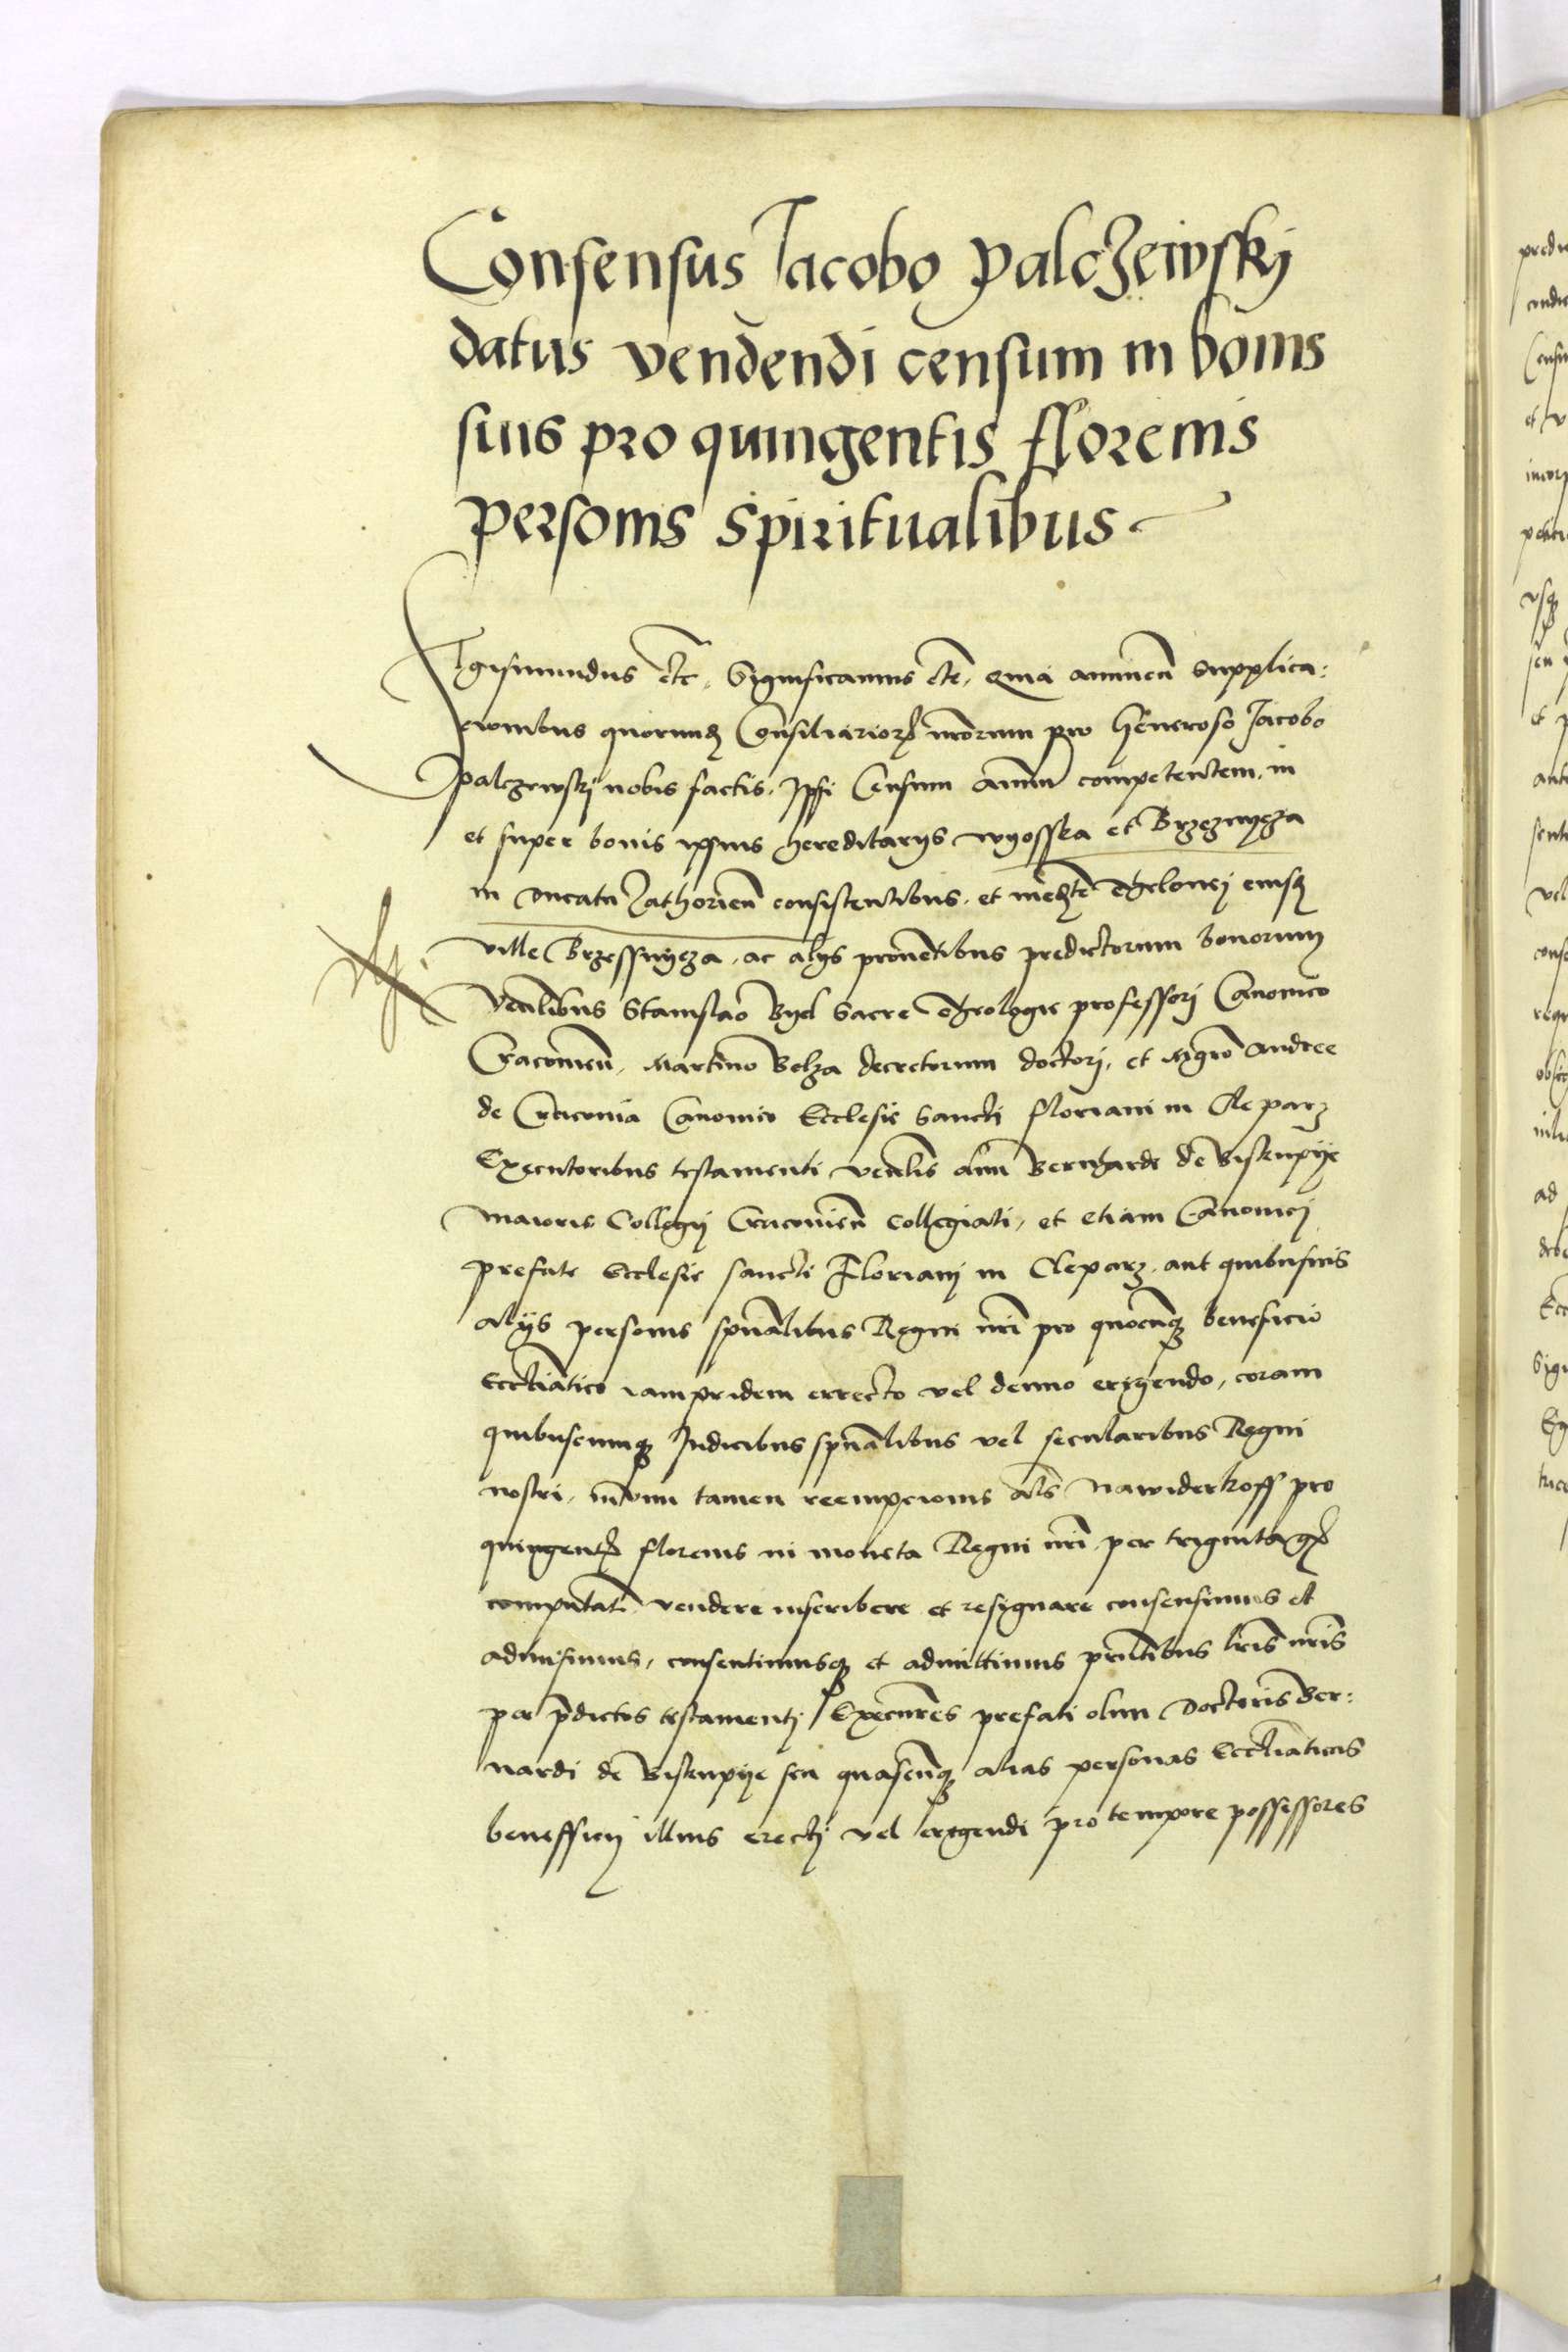 Consensus Jacobo Palczewskij
datus vendendi censum in bonis
suis pro quingentis florenis
personis spiritualibus
Sigismundus etc. Significamus etc. Quia annuen̄ supplica:
cionibus quorund Consiliarior nrorum pro Generoso Jacobo
Palczewskj nobis factis. Ipsi Censum annuū competentem in
et super bonis ipsius hereditarijs wyosska et Brzeznycza
in ducatu Zathorien̄ consistentibus. et thelonej eiusd
ville Brzessnycza. ac alijs proventibus predictorum bonorum
Venlibus Stanislao Byel Sacre theologie professorj Canonico
Cracovien̄. Martino Belza decretorum doctorj. et Mgro Andree
de Cracovia Canonico Ecclesie Sancti Floriani in Cleparz
Executoribus testamenti venlis olim Bernhardi de Bisкupye
Maioris Collegij Cracovien̄ collegiati. et etiam Canonicj
prefate Ecclesie sancti Florianj in Cleparz. aut quibusvis
alijs personis spūalibus Regni nri pro quocunq beneficio
Eccliastico iampridem errecto vel denuo erigendo. coram
quibuscumq Judicibus spūalibus vel secularibus Regni
nostri. tamen reempcionis als Nawiderkoff pro
quingent florenis in moneta Regni nri per triginta gr
computat vendere inscribere et resignare consensimus et
admisimus. consentimusq et admittimus prntibus lris nris
per pdictos testamentj Execures prefati olim Doctoris Ber:
nardi de Biskupye seu quascunq alias personas Eccliasticas
benefficij illius erectj vel erigendi pro tempore possessores